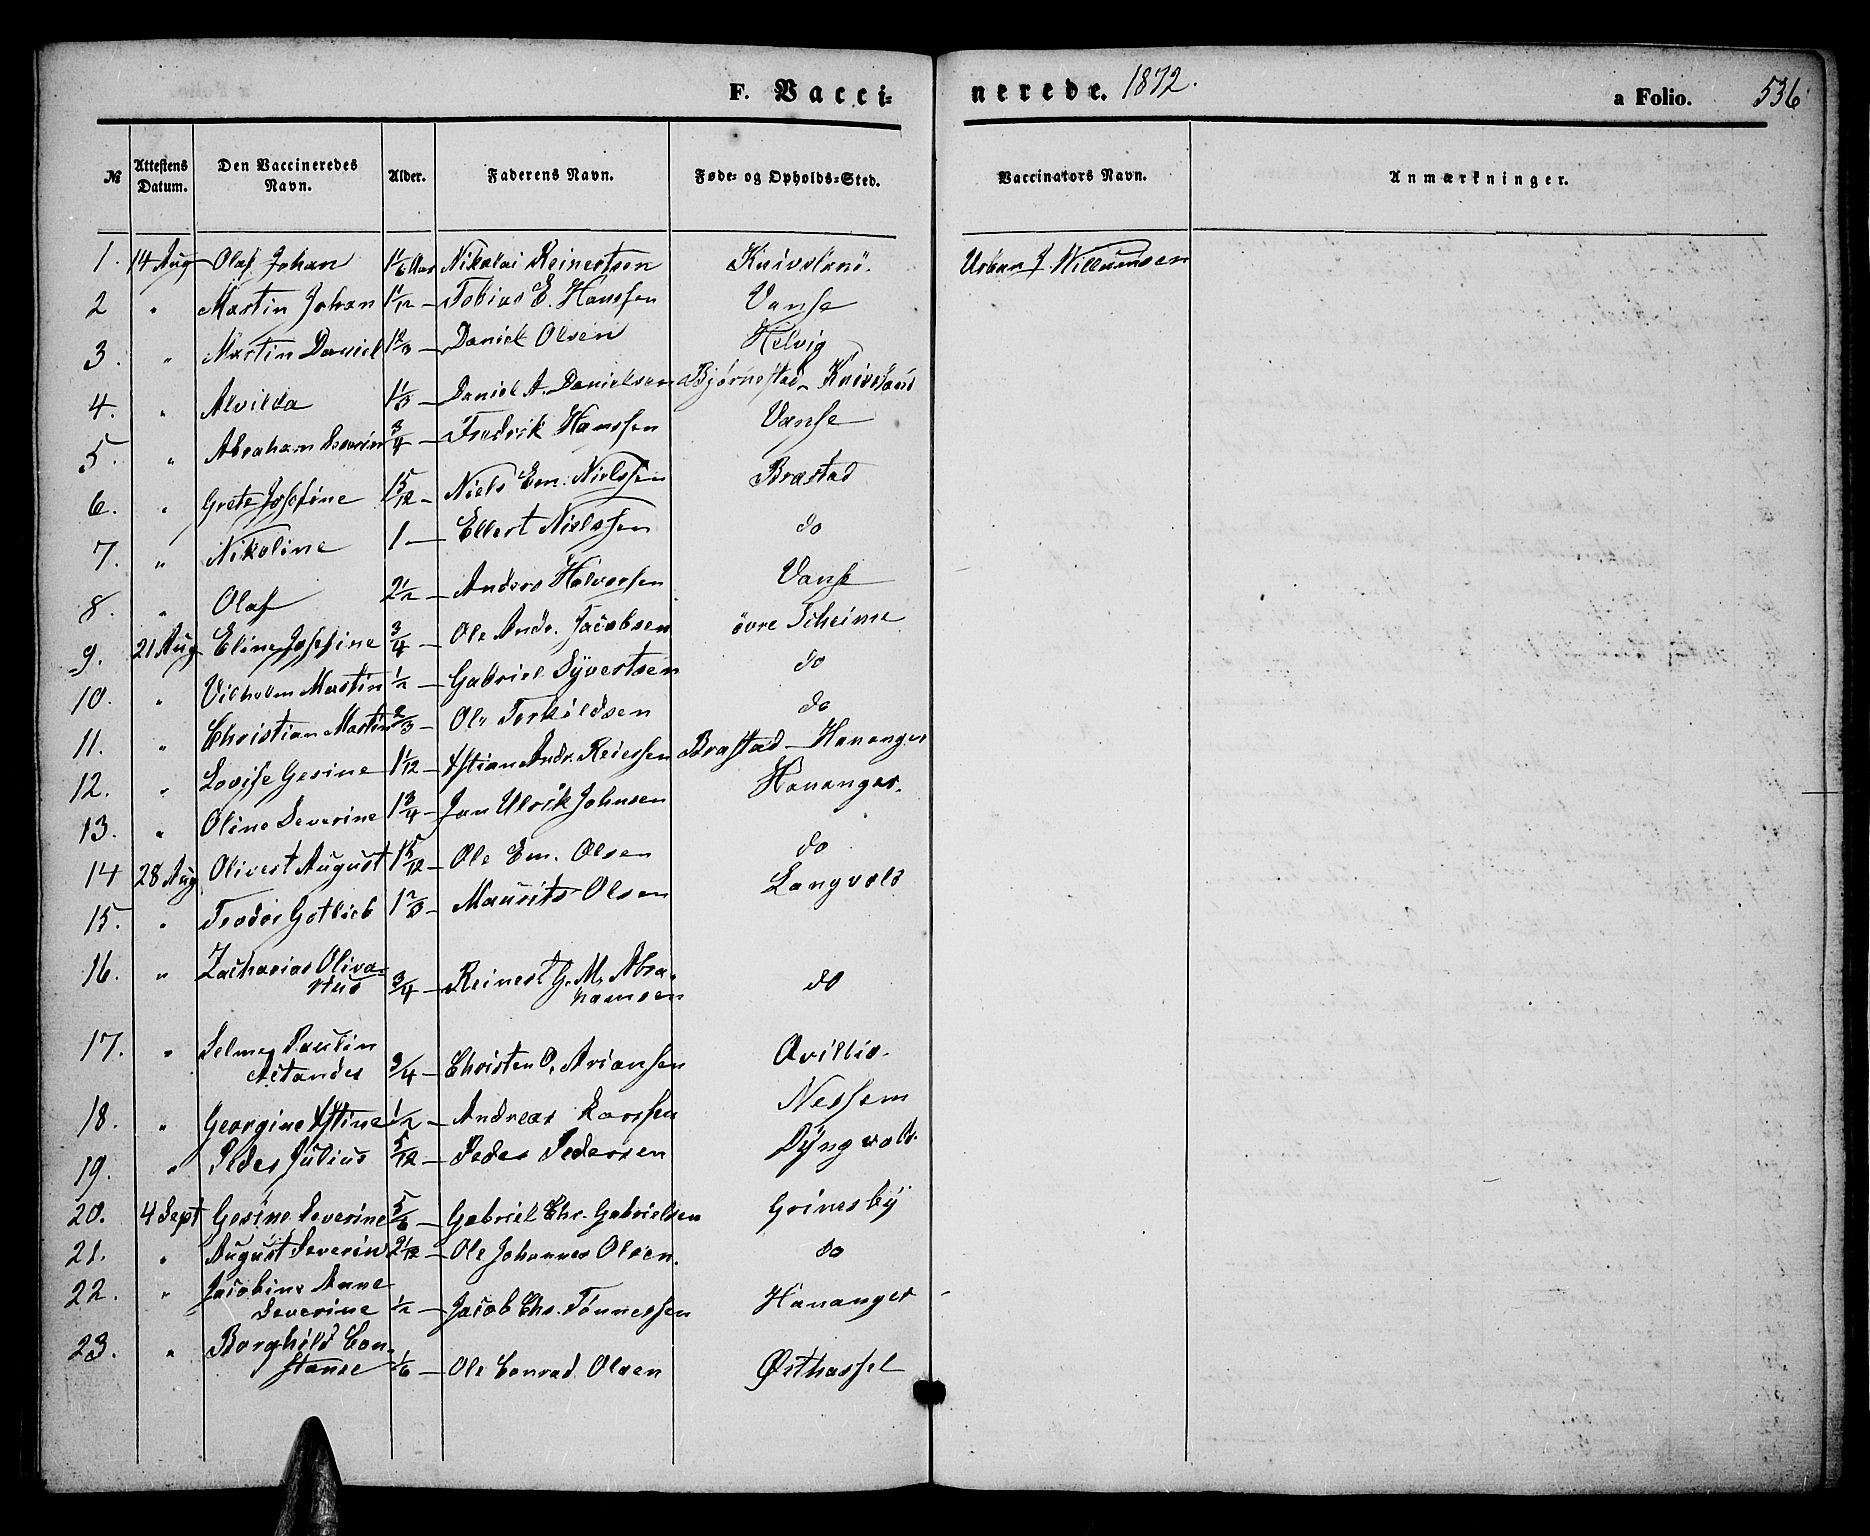 F. Vacci= nerede. 1872. a Folio. 536
№ Attestens Datum. Den Vaccineredes Navn. Alder. Faderens Navn. Føde- og Opholds-Sted. Vaccinators Navn. Anmærkninger.
1. 14 Aug Olaf Johan 1 1/6 Aar Nikolai Reinertsen Urban J. Willumsen
2 " Martin Johan 1 1/12 — Tobias E. Hanssen Vanse
3. " Martin Daniel 1 2/3 — Daniel Olsen Helvig
4. " Alvilda 1 1/3 — Daniel A. Danielsen Bjørnestad - Knivsland
5. " Abraham Severin 3/4 — Fredrik Hanssen Vanse
6. " Grete Josefine 1 5/12 — Niels Em. Nielssen Brastad
7. " Nikoline 1 — Ellert Nielssen do
8. " Olaf 2 1/2 — Anders Halversen Vanse
9. 21 Aug Eline Josefine 3/4 — Ole Andr. Jacobsen øvre Skeime
10. " Vilhelm Martin 1/2 — Gabriel Syvertsen do
11. " Christian Martin 2/3 — Ole Terkildsen do
12. " Lovise Gesine 1 1/12 — Xstian Andr. Reiersen Brastad — Hananger
13. " Oline Severine 1 3/4 — Jan Ulrik Johnsen Hananger.
14 28 Aug Olivert August 1 5/12 — Ole Em. Olsen do
15. " Teodor Gotlieb 1 2/3 — Maurits Olsen Langvold
16. " Zacharias Oliva=
rius 3/4 — Reinert G. M. Abra-
hamsen do
17. " Selmer Paulin
3/4 — Christen O. Ariansen
18. " Georgine Xstine 1/2 — Andreas Larssen Nessem
19. " Peder Julius 5/12 — Peder Pedersen Dyngvold.
20. 4 Sept Gesine Severine 5/6 — Gabriel Chr. Gabrielsen Grinesby
21. " August Severin 2 1/12 — Ole Johannes Olsen. do
22. " Jacobine Anne
Severine 1/2 — Jacob Chr. Tønnessen Hananger
23. " Borghild Con-
stanse 1/6 — Ole Conrad Olsen Østhassel